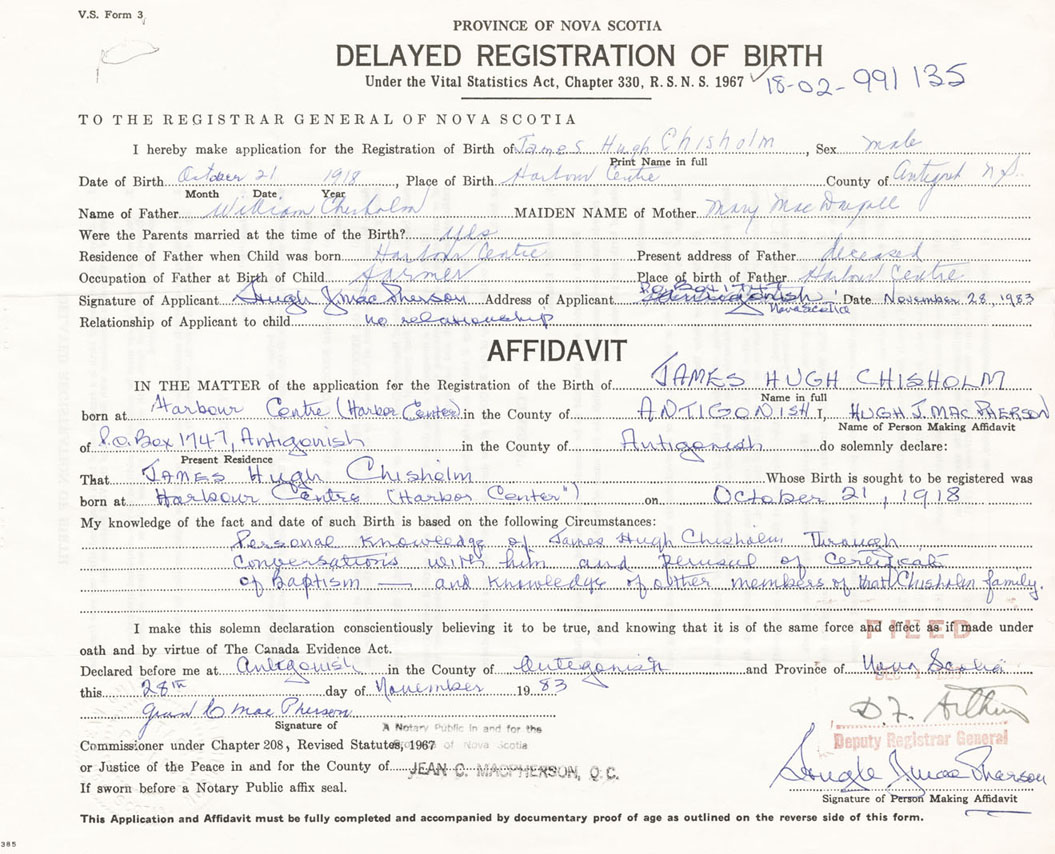 V.S. Form 3
PROVINCE OF NOVA SCOTIA
DELAYED REGISTRATION OF BIRTH
Under the Vital Statistics Act, Chapter 330, R.S.N.S. 1967 18-02-991135
TO THE REGISTRAR GENERAL OF NOVA SCOTIA
I hereby make application for the Registration of Birth of James Hugh Chisholm, Sex male
Print Name in full
Date of Birth October 21 1918, Place of Birth Harbour Centre County of Antignt N.S.
Month Date Year
Name of Father William Chisholm MAIDEN NAME of Mother Mary MacDougall
Were the Parents married at the time of the Birth? yes
Residence of Father when Child was born Harbour Centre Present address of Father deceased
Occupation of Father at Birth of Child farmer Place of birth of Father Harbour Centre
P.O. Box 1747
Signature of Applicant Hugh J. MacPherson Address of Applicant Antigonish Date November 28, 1983
Nova Scotia
Relationship of Applicant to child no relationship
AFFIDAVIT
IN THE MATTER of the application for the Registration of the Birth of JAMES HUGH CHISHOLM
Name in full
born at Harbour Centre (Harbor Center) in the County of ANTIGONISH I, HUGH J. MACPHERSON
Name of Person Making Affidavit
of P.O. Box 1747, Antigonish in the County of Antigonish do solemnly declare:
Present Residence
That JAMES Hugh Chisholm Whose Birth is sought to be registered was
born at Harbour Centre ("Harbor Center") on October 21, 1918
My knowledge of the fact and date of such Birth is based on the following Circumstances:
Personal Knowledge of James Hugh Chisholm Through
Conversations with him and perusal of Certificate
of Baptism — and Knowledge of other members of that Chisholm family.
I make this solemn declaration conscientiously believing it to be true, and knowing that it is of the same force and effect as if made under
FILED
oath and by virtue of The Canada Evidence Act.
Declared before me at Antigonish in the County of Antigonish and Province of Nova Scotia
DEC 1 1983
this 28th day of November 19 83
Jean C MacPherson
D.F. Arthur
Signature of A Notary Public in and for the
Deputy Registrar General
Commissioner under Chapter 208, Revised Statutes, 1967 of Nova Scotia
or Justice of the Peace in and for the County of JEAN C. MACPHERSON, Q.C.
Hugh J. MacPherson
If sworn before a Notary Public affix seal.
Signature of Person Making Affidavit
This Application and Affidavit must be fully completed and accompanied by documentary proof of age as outlined on the reverse side of this form.
385